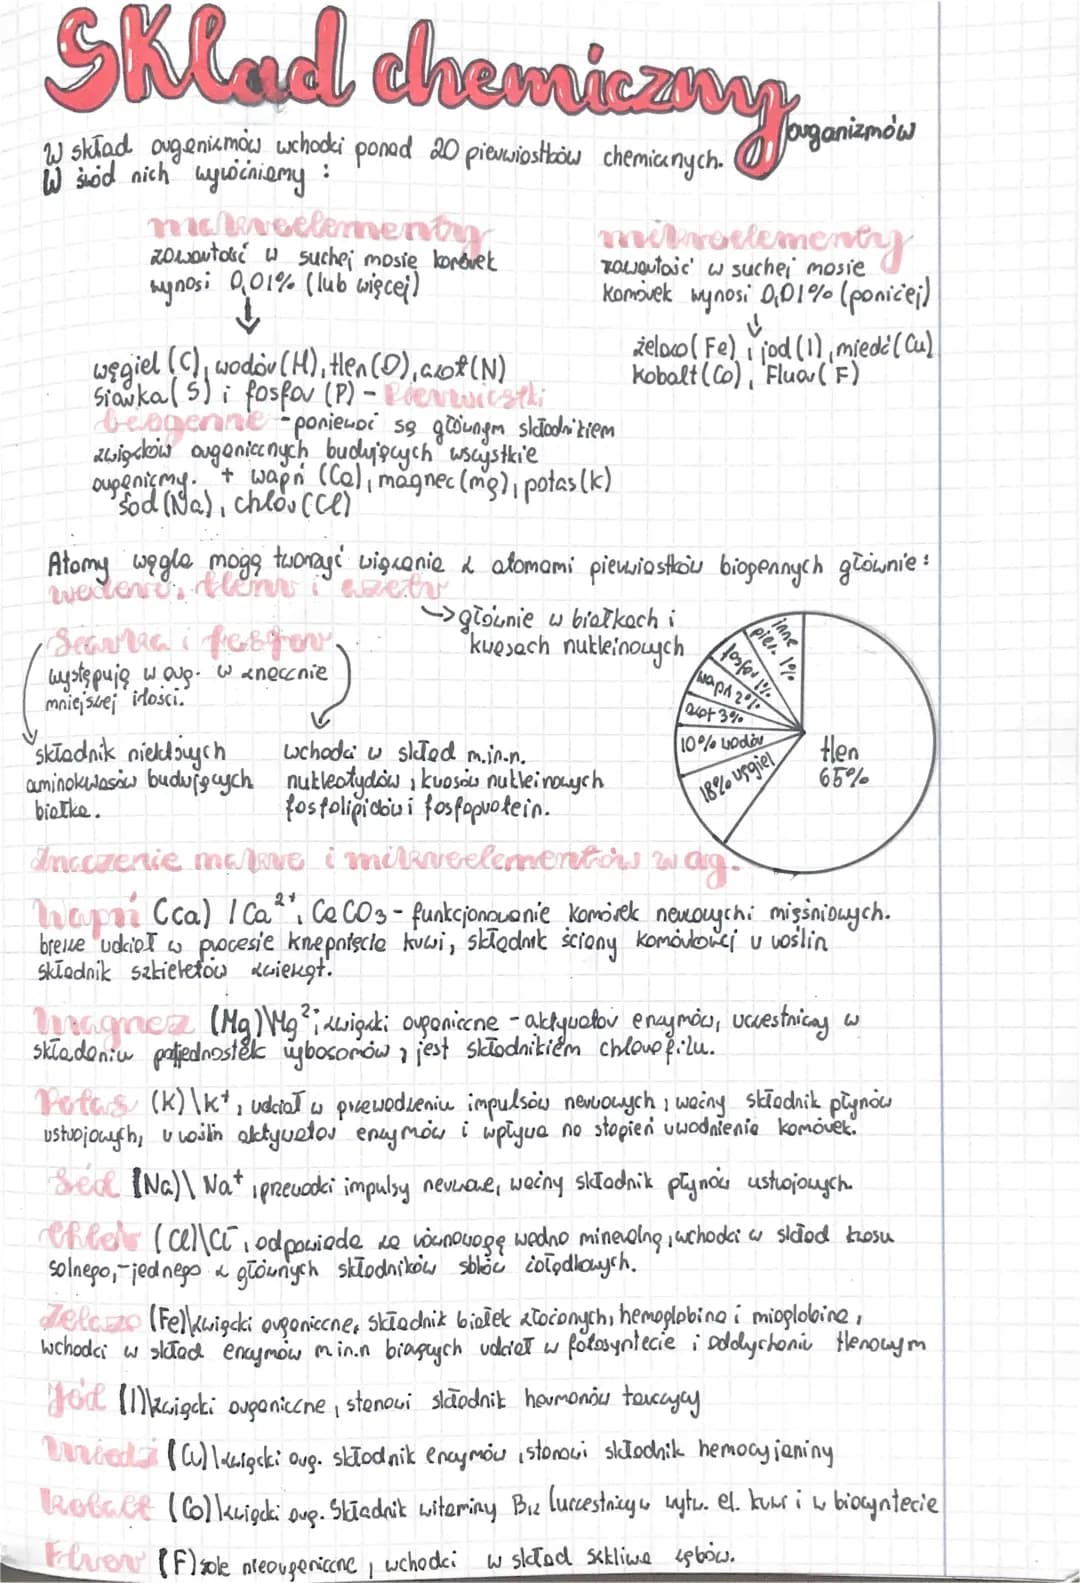 Skład chemiczny
organizmów
W skład organizmów wchodzi ponad 20 pierwiastków chemicznych.
Wśród nich wyróżniamy:
makroelementy
zawartość w suchej masie komórek
wynosi 0,01% (lub więcej)
węgiel (C), wodór (H), tlen (O), azot (N)
siarka (S) i fosfor (P) - Pierwiastki
biogenne - ponieważ są głównym składnikiem
związków organicznych budujących wszystkie
organizmy. + wapń (Ca), magnez (mg), potas (k)
sód (Na), chlor (Cl)
mikroelementy
zawartość w suchej masie
komórek wynosi 0,01% (poniżej)
żelazo (Fe), jod (I), miedź (Cu)
Kobalt (Co), Fluor (F)
Atomy węgla mogą tworzyć wiązania z atomami pierwiastków biogennych głównie:
wodoru, tlenu i azotu
→ głównie w białkach i
kwasach nukleinowych
Siarka i fosfor
występują w org. w znacznie
mniejszej ilości.
składnik niektórych
aminokwasów budujących
białka.
wchodzi w skład m.in.n.
nukleotydów, kwasów nukleinowych
fosfolipidów i fosfoprotein.
inne pier. 1%
fosfor 1%
wapń 2%
azot 3%
10% wodór
18% węgiel
tlen
65%
Znaczenie makro i mikroelementów w og.
Wapń (Ca) / Ca²⁺, CaCO3 - funkcjonowanie komórek nerwowych i mięśniowych.
bierze udział w procesie krzepnięcia krwi, składnik ściany komórkowej u roślin
składnik szkieletów zwierząt.
Magnez (Mg)\Mg²⁺; związki organiczne - aktywator enzymów, uczestniczy w
składaniu podjednostek rybosomów, jest składnikiem chlorofilu.
Potas (K)\K⁺, udział w przewodzeniu impulsów nerwowych, ważny składnik płynów
ustrojowych, u roślin aktywator enzymów i wpływa na stopień uwodnienia komórek.
Sód (Na)\ Na⁺, przewodzi impulsy nerwowe, ważny składnik płynów ustrojowych.
Chlor (Cl)\Cl⁻, odpowiada za równowagę wodno mineralną, wchodzi w skład kwasu
solnego, - jednego z głównych składników soków żołądkowych.
Żelazo (Fe)\związki organiczne, składnik białek złożonych, hemoglobina i mioglobina,
wchodzi w skład enzymów m.in.n biorących udział w fotosyntezie i oddychaniu tlenowym
Jod (I)\związki organiczne, stanowi składnik hormonów tarczycy
Miedź (Cu)\związki org. składnik enzymów, stanowi składnik hemocyjaniny
Kobalt (Co)\związki org. Składnik witaminy B12 (uczestniczy w wytw. el. krwi i w biosyntezie
Fluor (F) sole nieorganiczne, wchodzi w skład szkliwa zębów.